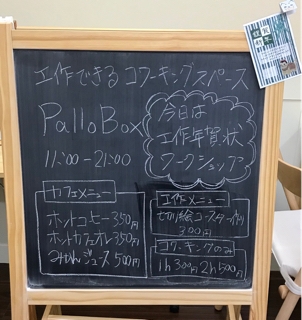 工作できるコワーキングスペース
PalloBox
11:00-21:00
今日は
工作年賀状
ワークショップ
カフェメニュー
ホットコーヒー 350円
ホットカフェオレ 350円
みかんジュース 500円
工作メニュー
切り絵コースター作り
300円
コワーキングのみ
1h 300円 2h 500円